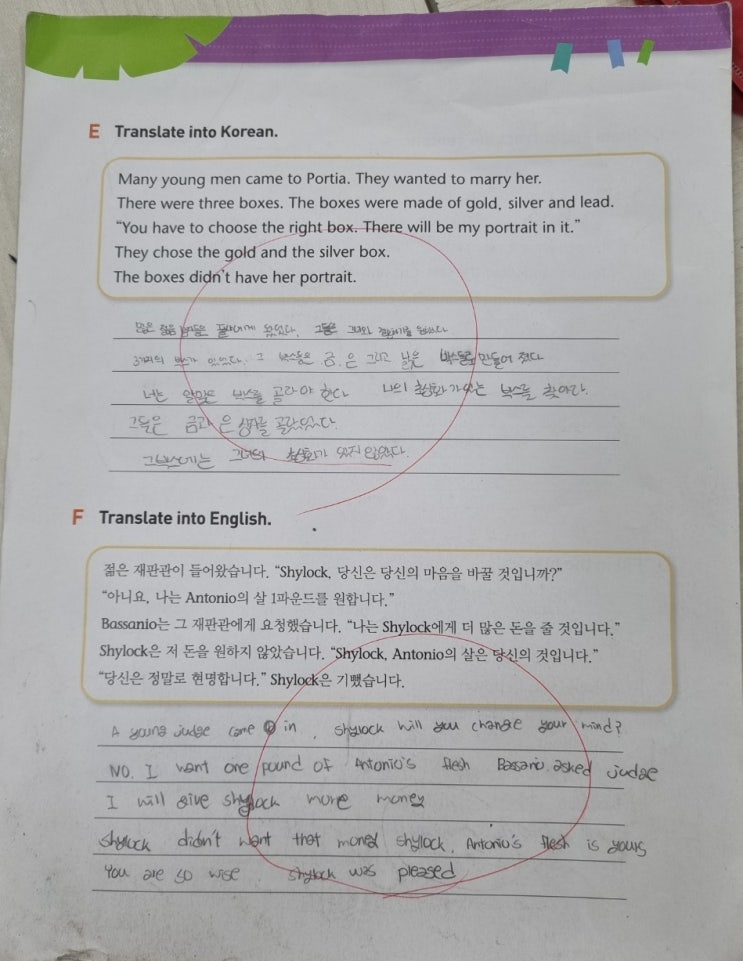 E Translate into Korean.
Many young men came to Portia. They wanted to marry her.
There were three boxes. The boxes were made of gold, silver and lead.
“You have to choose the right box. There will be my portrait in it.”
They chose the gold and the silver box.
The boxes didn’t have her portrait.
많은 젊은 그들은 그녀와
3개의 박스가 있었다. 그 박스들은 금, 은 그리고 납은 만들어 졌다
너는 알맞은 박스를 골라야 한다 나의 초상화가 있는 박스를 찾아라.
그들은 금과 은 상자를 골랐었다.
그박스에는 그녀의 초상화가 있지 않았다.
F Translate into English.
젊은 재판관이 들어왔습니다. “Shylock, 당신은 당신의 마음을 바꿀 것입니까?”
“아니요, 나는 Antonio의 살 1파운드를 원합니다.”
Bassanio는 그 재판관에게 요청했습니다. “나는 Shylock에게 더 많은 돈을 줄 것입니다.”
Shylock은 저 돈을 원하지 않았습니다. “Shylock, Antonio의 살은 당신의 것입니다.”
“당신은 정말로 현명합니다.” Shylock은 기뻤습니다.
A young judge came in . shylock will you change your mind?
NO. I want one pound of Antonio's flesh Bassanio asked judge
I will give shylock more money
shylock didn't want that money shylock. Antonio's flesh is yours
You are so wise shylock was pleased